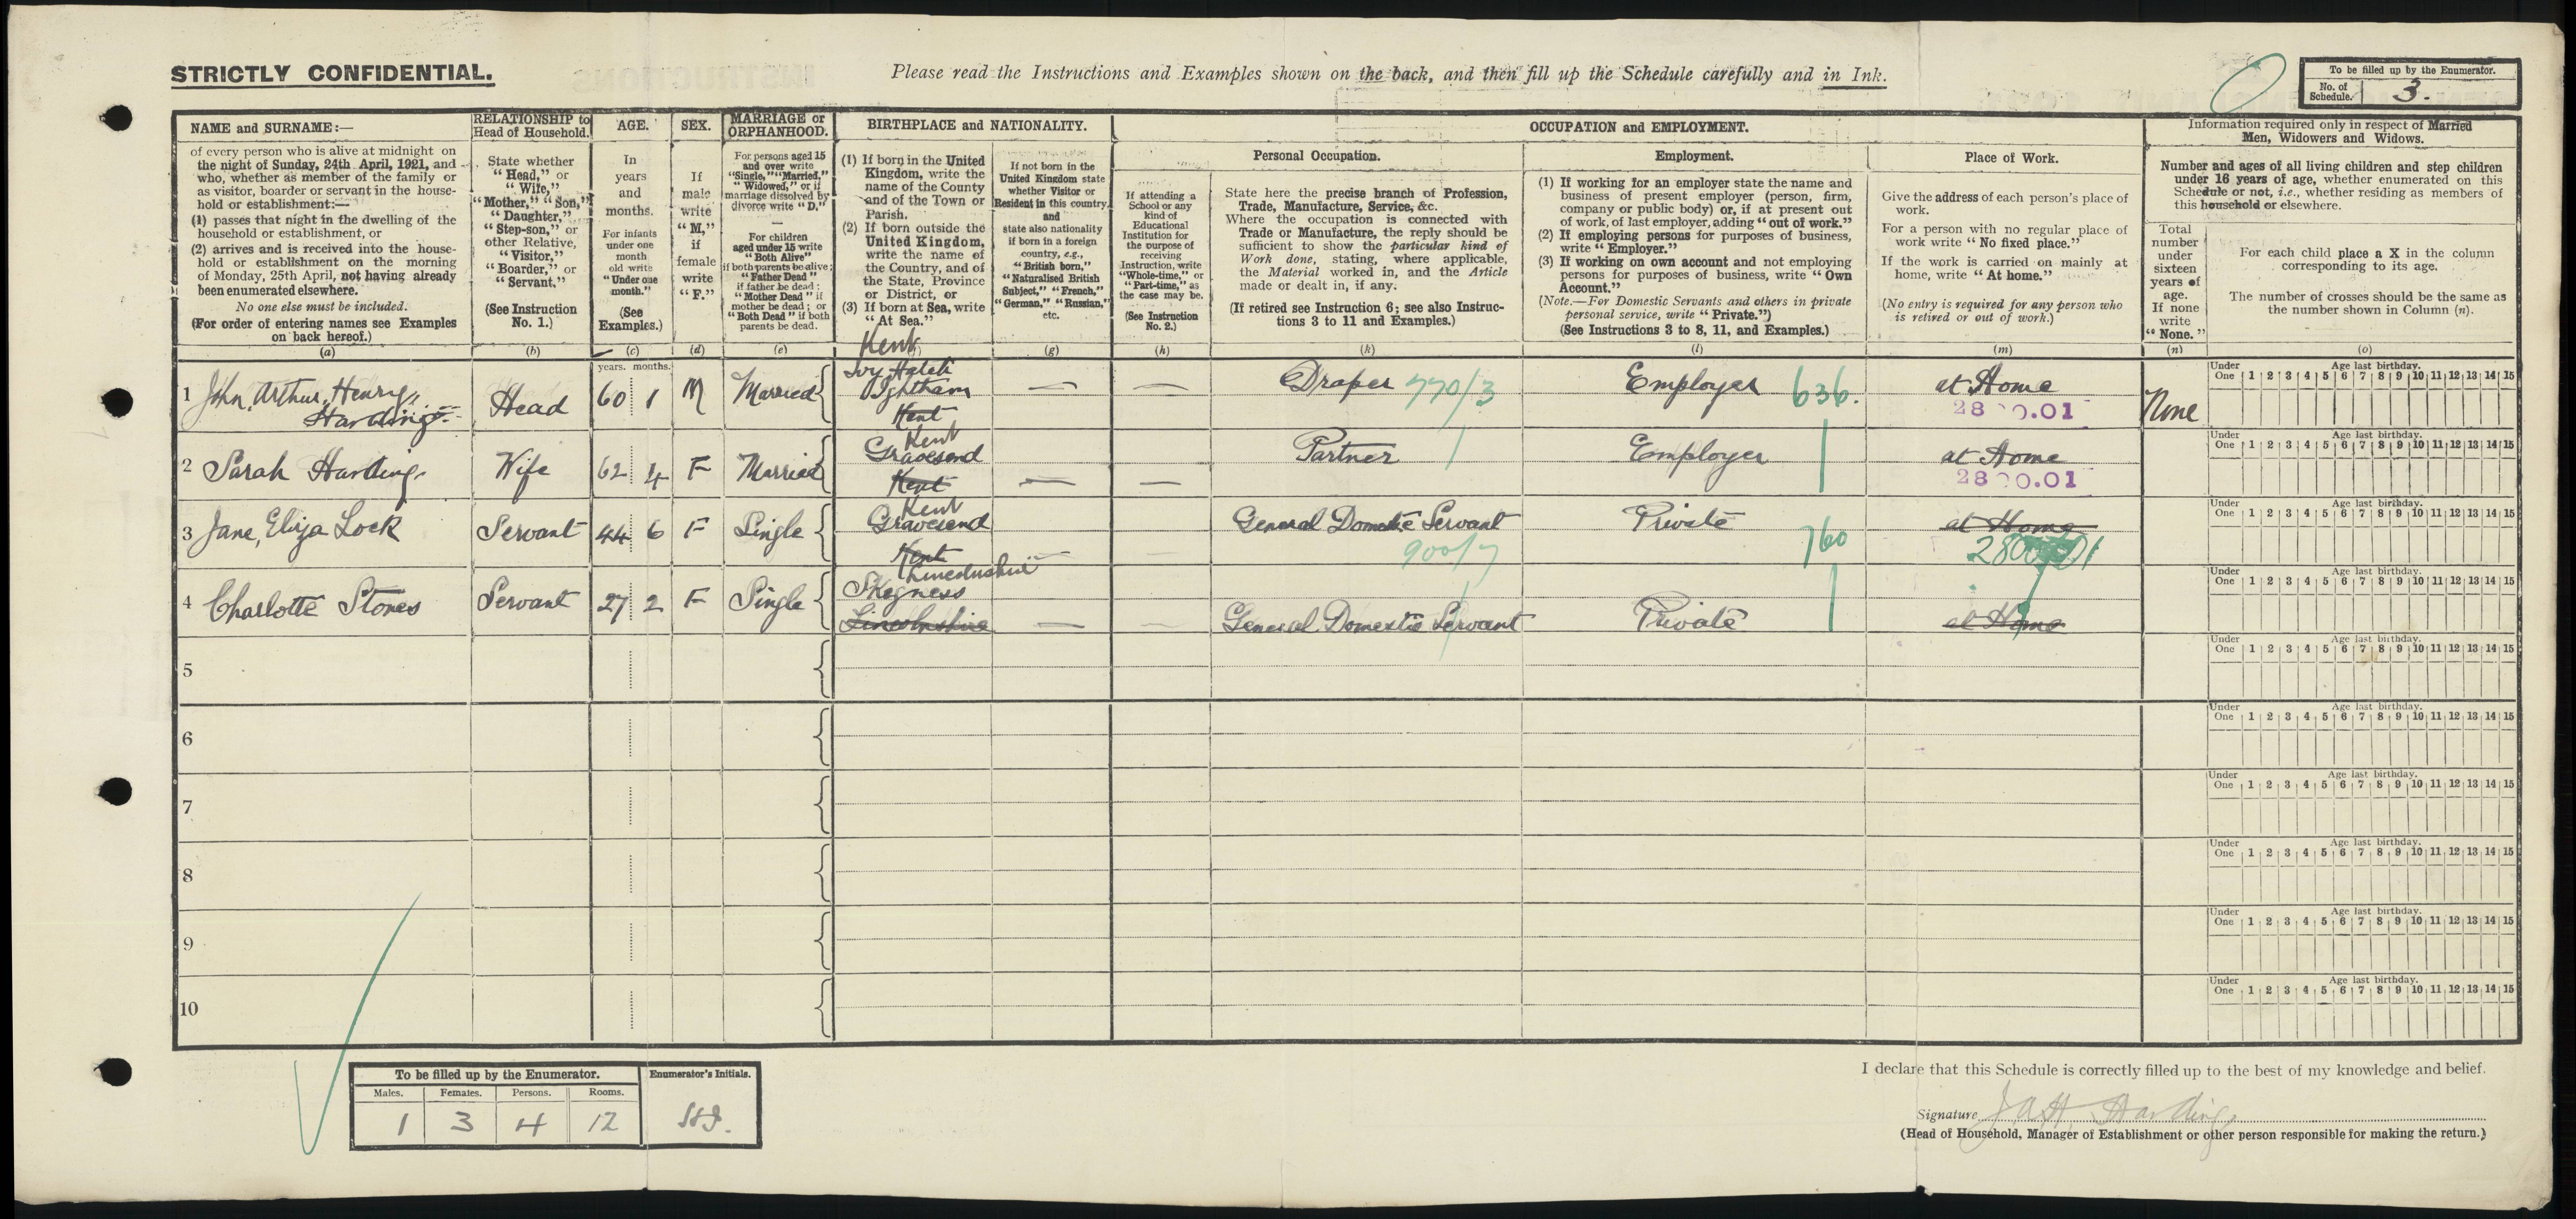 STRICTLY CONFIDENTIAL.
Please read the Instructions and Examples shown on the back, and then fill up the Schedule carefully and in Ink.
To be filled up by the Enumerator.
No. of Schedule. 3.
NAME and SURNAME:—
of every person who is alive at midnight on
the night of Sunday, 24th April, 1921, and
who, whether as member of the family or
as visitor, boarder or servant in the house-
hold or establishment:—
(1) passes that night in the dwelling of the
household or establishment, or
(2) arrives and is received into the house-
hold or establishment on the morning
of Monday, 25th April, not having already
been enumerated elsewhere.
No one else must be included.
(For order of entering names see Examples
on back hereof.)
(a)
RELATIONSHIP to
Head of Household.
State whether
"Head," or
"Wife,"
"Mother," "Son,"
"Daughter,"
"Step-son," or
other Relative,
"Visitor,"
"Boarder," or
"Servant."
(See Instruction
No. 1.)
(b)
AGE.
In
years
and
months.
For infants
under one
month
old write
"Under one
month."
(See
Examples.)
(c)
SEX.
If
male
write
"M,"
if
female
write
"F."
(d)
MARRIAGE or
ORPHANHOOD.
For persons aged 15
and over write
"Single," "Married,"
"Widowed," or if
marriage dissolved by
divorce write "D."
—
For children
aged under 15 write
"Both Alive"
if both parents be alive;
"Father Dead"
if father be dead;
"Mother Dead" if
mother be dead; or
"Both Dead" if both
parents be dead.
(e)
BIRTHPLACE and NATIONALITY.
(1) If born in the United
Kingdom, write the
name of the County
and of the Town or
Parish.
(2) If born outside the
United Kingdom,
write the name of
the Country, and of
the State, Province
or District, or
(3) If born at Sea, write
"At Sea."
If not born in the
United Kingdom state
whether Visitor or
Resident in this country,
and
state also nationality
if born in a foreign
country, e.g.,
"British born,"
"Naturalised British
Subject," "French,"
"German," "Russian,"
etc.
(g)
OCCUPATION and EMPLOYMENT.
If attending a
School or any
kind of
Educational
Institution for
the purpose of
receiving
Instruction, write
"Whole-time," or
"Part-time," as
the case may be.
(See Instruction
No. 2.)
(h)
Personal Occupation.
State here the precise branch of Profession,
Trade, Manufacture, Service, &c.
Where the occupation is connected with
Trade or Manufacture, the reply should be
sufficient to show the particular kind of
Work done, stating, where applicable,
the Material worked in, and the Article
made or dealt in, if any.
(If retired see Instruction 6; see also Instruc-
tions 3 to 11 and Examples.)
(k)
Employment.
(1) If working for an employer state the name and
business of present employer (person, firm,
company or public body) or, if at present out
of work, of last employer, adding "out of work."
(2) If employing persons for purposes of business,
write "Employer."
(3) If working on own account and not employing
persons for purposes of business, write "Own
Account."
(Note.—For Domestic Servants and others in private
personal service, write "Private.")
(See Instructions 3 to 8, 11, and Examples.)
(l)
Place of Work.
Give the address of each person's place of
work.
For a person with no regular place of
work write "No fixed place."
If the work is carried on mainly at
home, write "At home."
(No entry is required for any person who
is retired or out of work.)
(m)
Information required only in respect of Married
Men, Widowers and Widows.
Number and ages of all living children and step children
under 16 years of age, whether enumerated on this
Schedule or not, i.e., whether residing as members of
this household or elsewhere.
Total
number
under
sixteen
years of
age.
If none
write
"None."
(n)
For each child place a X in the column
corresponding to its age.
The number of crosses should be the same as
the number shown in Column (n).
(o)
years. months.
Kent
Ivy Hatch
1 John, Arthur, Henry, Harding Head 60 1 M Married Ightham Kent — — Draper 770/3 Employer 636. at Home None
Under One 1 2 3 4 5 6 7 8 9 10 11 12 13 14 15
Age last birthday.
Kent
2 Sarah Harding Wife 62 4 F Married Gravesend Kent — — Partner Employer at Home
Under One 1 2 3 4 5 6 7 8 9 10 11 12 13 14 15
Age last birthday.
Kent
3 Jane, Eliza Lock Servant 44 6 F Single Gravesend Kent General Domestic Servant 900/7 Private 760 at Home
Under One 1 2 3 4 5 6 7 8 9 10 11 12 13 14 15
Age last birthday.
Lincolnshire
4 Charlotte Stones Servant 27 2 F Single Skegness Lincolnshire — — General Domestic Servant Private at Home
Under One 1 2 3 4 5 6 7 8 9 10 11 12 13 14 15
Age last birthday.
5
Under One 1 2 3 4 5 6 7 8 9 10 11 12 13 14 15
Age last birthday.
6
Under One 1 2 3 4 5 6 7 8 9 10 11 12 13 14 15
Age last birthday.
7
Under One 1 2 3 4 5 6 7 8 9 10 11 12 13 14 15
Age last birthday.
8
Under One 1 2 3 4 5 6 7 8 9 10 11 12 13 14 15
Age last birthday.
9
Under One 1 2 3 4 5 6 7 8 9 10 11 12 13 14 15
Age last birthday.
10
Under One 1 2 3 4 5 6 7 8 9 10 11 12 13 14 15
Age last birthday.
To be filled up by the Enumerator.
Males. Females. Persons. Rooms.
1 3 4 12
Enumerator's Initials.
I declare that this Schedule is correctly filled up to the best of my knowledge and belief.
Signature J. A. H. Harding
(Head of Household, Manager of Establishment or other person responsible for making the return.)